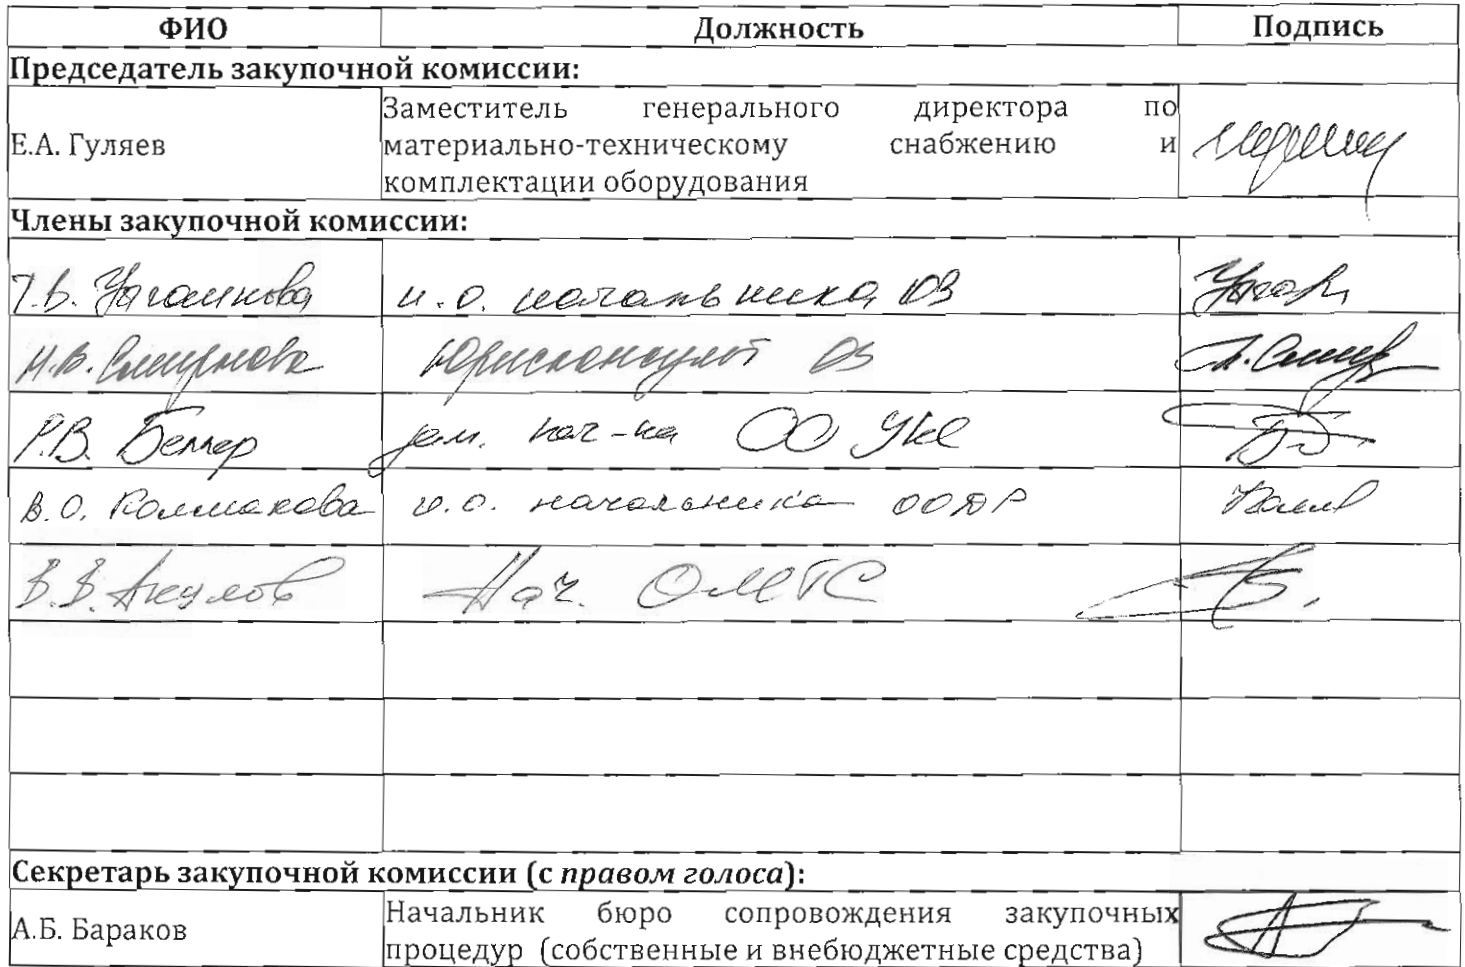 ФИО Должность Подпись
Председатель закупочной комиссии:
Заместитель генерального директора по
Е.А. Гуляев материально-техническому снабжению и
комплектации оборудования
Члены закупочной комиссии:
и.о. начальника ОЗ
Н.В. Смирнова Юрисконсульт ОЗ
Р.В. Беллер зам. нач-ка ОО УКС
В.О. Колмакова и.о. начальника ООДР
В.В. Акулов Нач. ОМТС
Секретарь закупочной комиссии (с правом голоса):
Начальник бюро сопровождения закупочных
А.Б. Бараков процедур (собственные и внебюджетные средства)